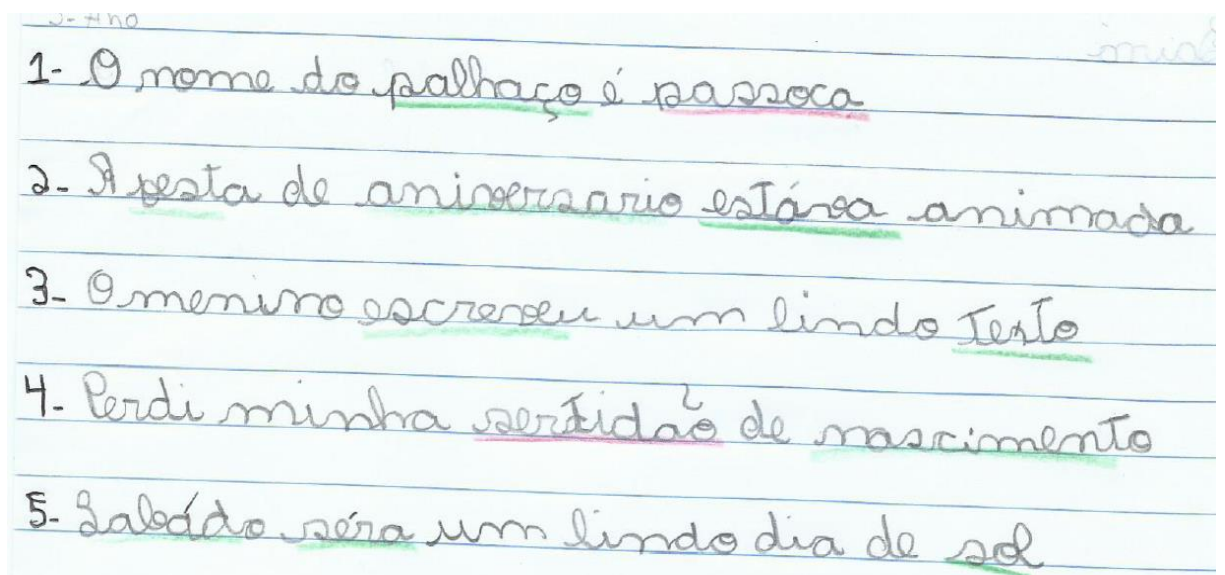 5- Ano
1- O nome do palhaço é passoca
2- A festa de aniversario estáva animada
3- O menino escreveu um lindo Texto
4- Perdi minha sertidão de nascimento
5- Sabádo séra um lindo dia de sol